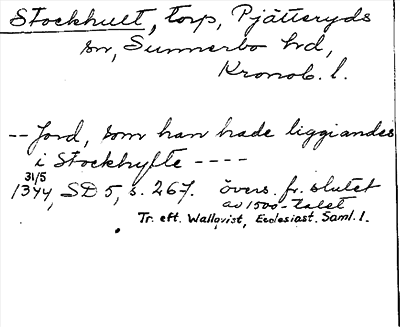 Stockhult, torp, Pjätteryds
sn, Sunnerbo hd,
Kronob. l.
-- Jord, som han hade liggiandes
i Stockhylte ----
31/5
1344, SD 5, s. 267. övers. fr. slutet
av 1500-talet
Tr. eft. Wallqvist, Ecclesiast. Saml. 1.